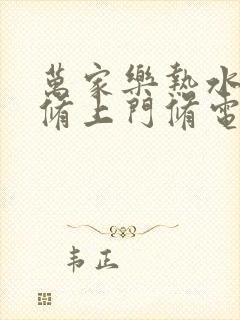 萬家樂熱水
脩上門脩電
韦正